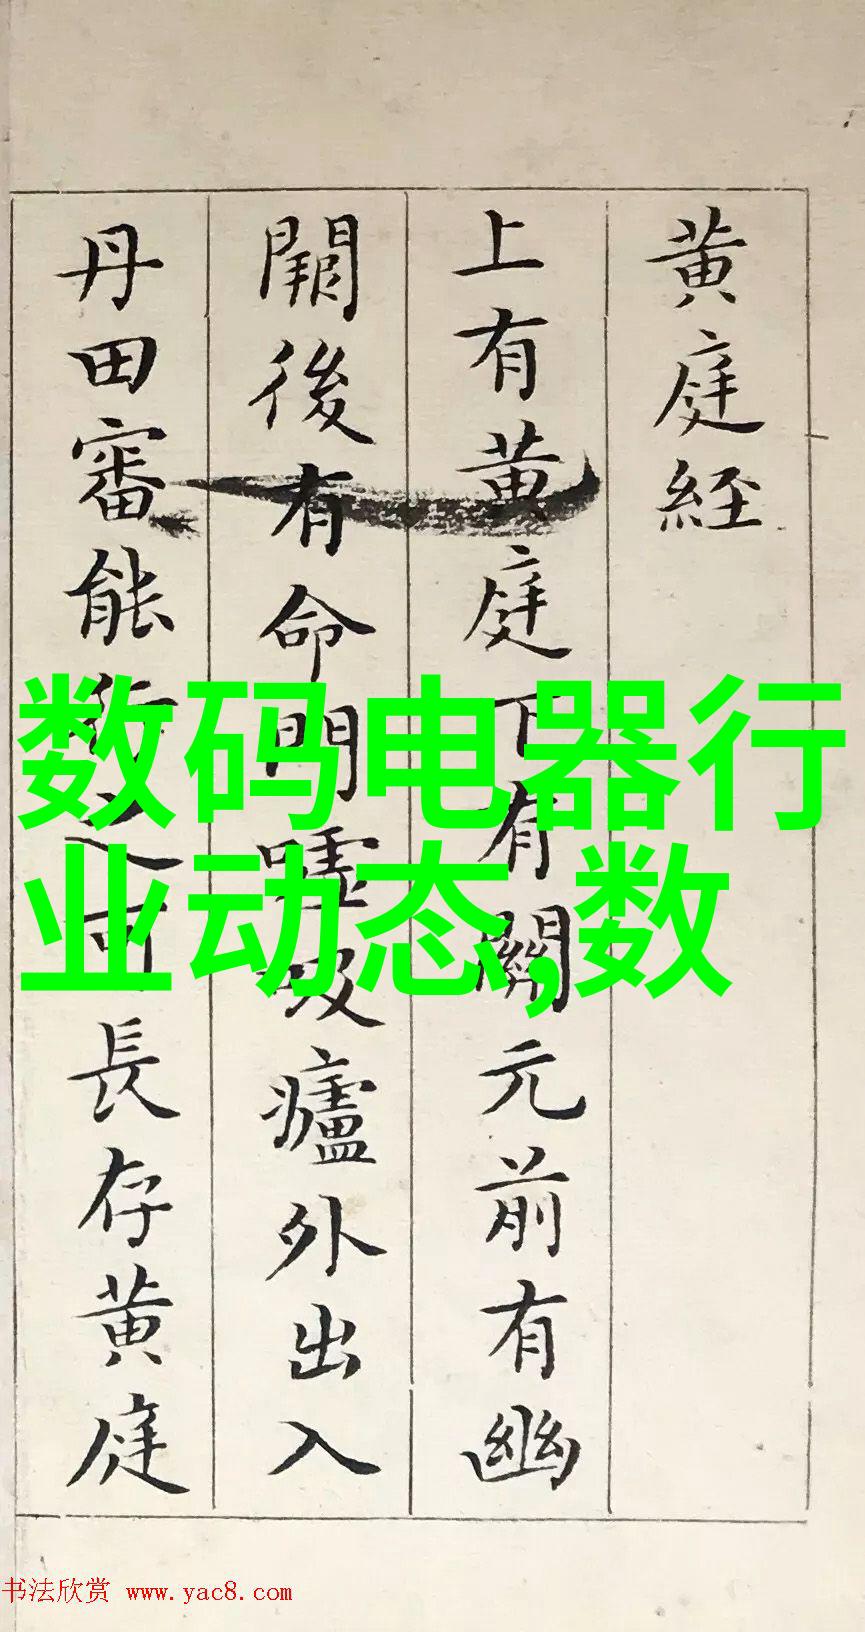 黄庭經
上有黄庭下有關元前有幽
闕後有命門嘘吸廬外出入
丹田審能行之可長存黄庭
数码电器行
业动态,数
书法欣赏 www.yac8.com